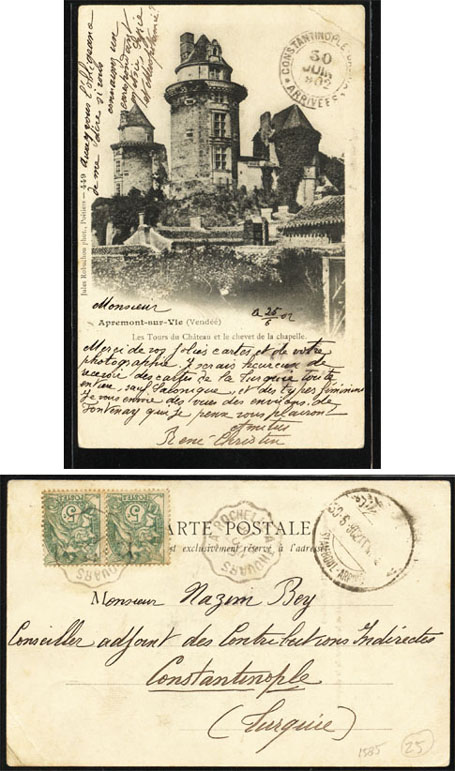 ayez donc l'obligeance
de me dire si vous
connaissez un
correspondant
CONSTANTINOPLE
30
JUIN
902
ARRIVEE
Jules Robuchon phot., Poitiers — 449
Monsieur
Apremont-sur-Vie (Vendée)
Le 26/6 02
Les Tours du Château et le chevet de la chapelle.
Merci de vos jolies cartes et de votre
photographie. Je serais heureux de
recevoir des cartes de la Turquie toute
entière, sauf Salonique, et des types féminins
Je vous envoie des vues des environs de
Fontenay qui je pense vous plairont
Amitiés
René Christin
5 5
LA ROCHELLE A THOUARS
CARTE POSTALE
est exclusivement réservé à l'adresse
30-6-902
STAMBOUL
Monsieur Nazim Bey
Conseiller adjoint des Contributions Indirectes
Constantinople
(Turquie)
1585
25